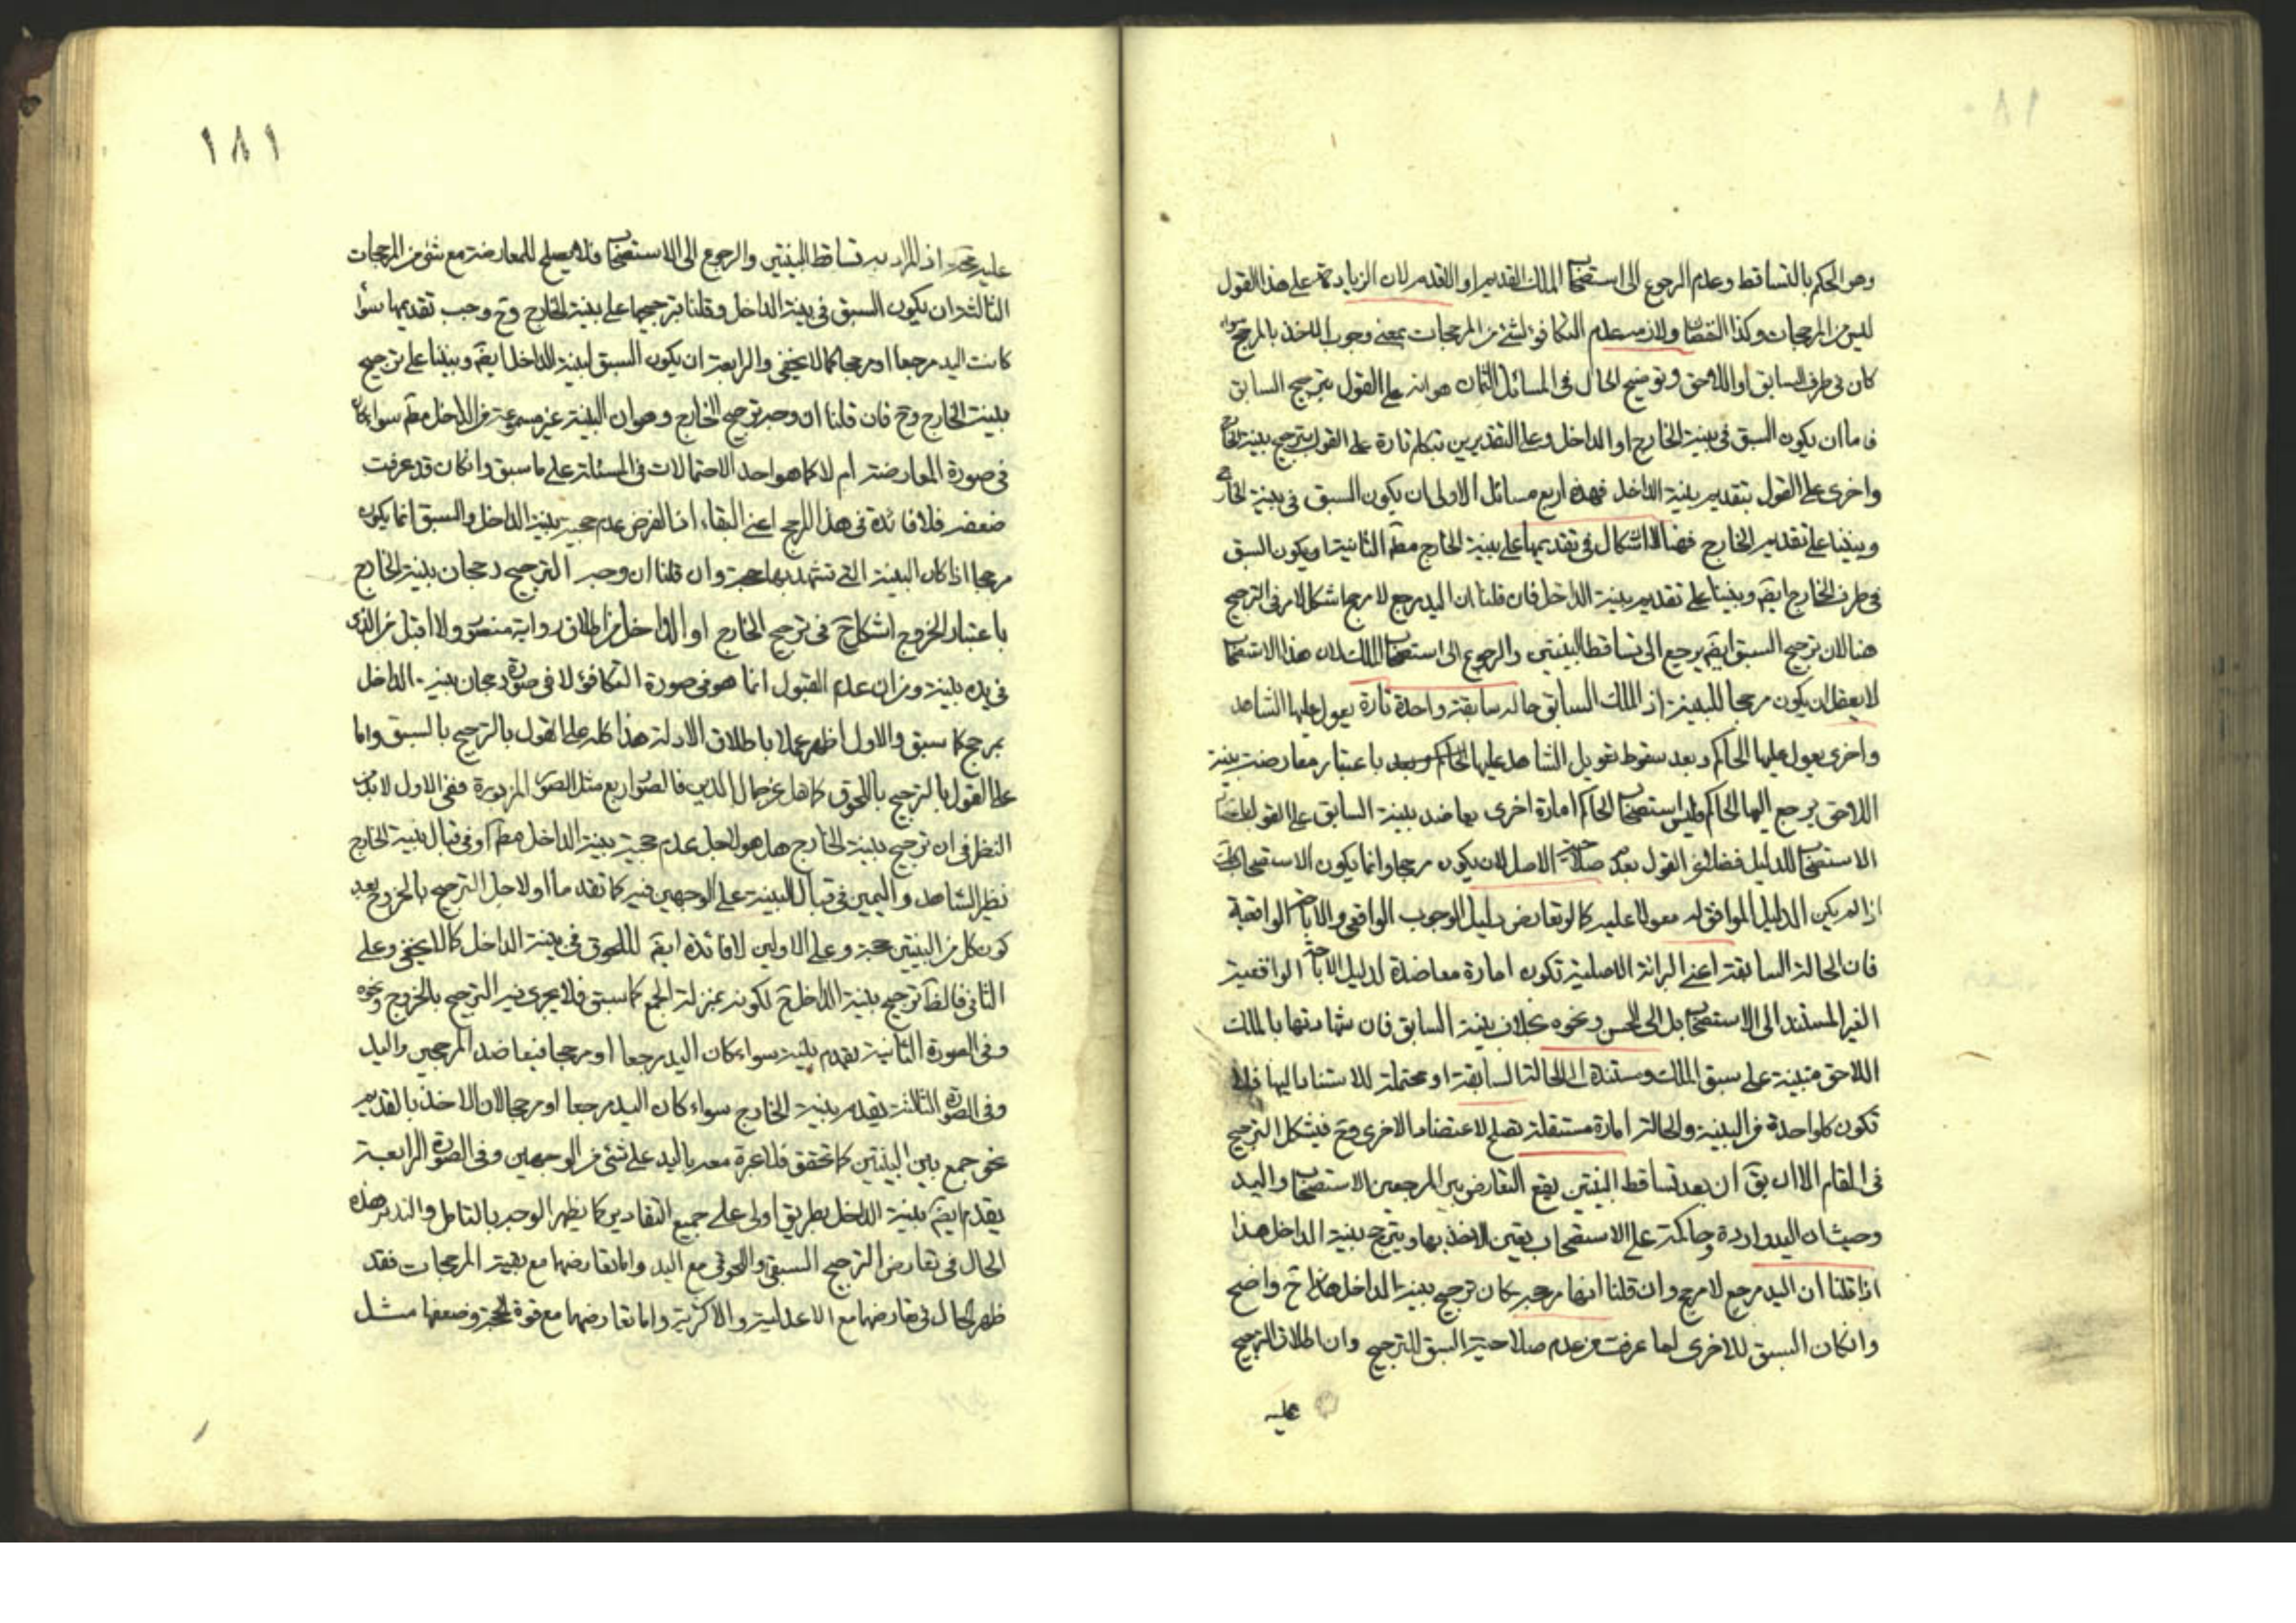 وهو الحكم بالتساقط وعدم الرجوع الى استصحاب الملك القديم او الاقدم لان الزيادة على هذا القول
ليس من المرجحات وكذا النقصان ولازمه عدم التكافؤ لشئ من المرجحات بمعنى وجوب الاخذ بالمرجح سواء
كان في طرف السابق او اللاحق وتوضيح الحال في المسائل الثمان هو انه على القول بترجيح السابق
فاما ان يكون السبق في بينة الخارج او الداخل وعلى التقديرين نتكلم تارة على القول بترجيح بينة الخارج
واخرى على القول بتقديم بينة الداخل فهذه اربع مسائل الاولى ان يكون السبق في بينة الخارج
وبنينا على تقديم الخارج فهنا لا اشكال في تقديمها على بينة الخارج مطم الثانية ان يكون السبق
في طرف الخارج ايضم وبنينا على تقديم بينة الداخل فان قلنا ان اليد مرجع لا مرجح اشكل الامر في الترجيح
هنا لان ترجيح السبق ايضم يرجع الى تساقط البينتين والرجوع الى استصحاب الملك لان هذا الاستصحاب
لا يعقل ان يكون مرجحا للبينة اذ الملك السابق حالة سابقة واحدة تارة يعول عليها الشاهد
واخرى يعول عليها الحاكم وبعد سقوط تعويل الشاهد عليها باعتبار معارضته ببينة
اللاحق يرجع اليها الحاكم وليس استصحاب الحاكم امارة اخرى يعاضد بينة السابق على القول
الاستصحاب للدليل فضلا عن القول بعدم صلاحية الاصل لان يكون مرجحا وانما يكون الاستصحاب
اذا لم يكن الدليل الموافق له معولا عليه كما لو تعارض دليل الوجوب الواقعي والاباحة الواقعية
فان الحالة السابقة اعني البرائة الاصلية تكون امارة معاضدة لدليل الاباحة الواقعية
الغير المستند الى الاستصحاب بل الى الحس ونحوه بخلاف بينة السابق فان شهادتها بالملك
اللاحق مبنية على سبق الملك ومستندة الى الحالة السابقة او محتملة للاستناد اليها فلا
تكون كل واحدة من البينة والحالة امارة مستقلة تصلح لاعتضاد الاخرى وح فيشكل الترجيح
في المقام الا ان يق ان بعد تساقط البينتين يقع التعارض بين المرجعين الاستصحاب واليد
وحيث ان اليد واردة وحاكمة على الاستصحاب يتعين الاخذ بها ويترجح ببينة الداخل هذا
اذا قلنا ان اليد مرجع لا مرجح وان قلنا انها مرجحة كان ترجيح بينة الداخل ح واضح
وانكان السبق للاخرى لما عرفت من عدم صلاحية السبق للترجيح وان اطلاق الترجيح
عليه
١٨١
عليه اذ المراد به تساقط البينتين والرجوع الى الاستصحاب فلا يصلح للمعارضة مع شئ من المرجحات
الثالثة ان يكون السبق في بينة الداخل وقلنا بترجيحها على بينة الخارج وح وجب تقديمها سواء
كانت اليد مرجعا او مرجحا كما لا يخفى والرابعة ان يكون السبق لبينة الداخل ايضم وبنينا على ترجيح
بينة الخارج وح فان قلنا ان وجه ترجيح الخارج وهو ان البينة غير مسموعة من الداخل مطم سواء كان
في صورة المعارضة ام لا كما هو احد الاحتمالات في المسئلة على ما سبق وانكان قد عرفت
ضعفه فلا فائدة في هذا المرجح اعني البقاء اذ الفرض عدم حجية بينة الداخل والسبق انما يكون
مرجحا اذا كان البينة التي تشهد بها حجة وان قلنا ان وجه الترجيح رجحان بينة الخارج
باعتبار الخروج اشكل ح في ترجيح الخارج او الداخل من اطلاق رواية منصور ولا اقبل من الذي
في يده بينة ومن ان عدم القبول انما هو في صورة التكافؤ لا في صورة رجحان بينة الداخل
بمرجح كما سبق والاول اظهر عملا باطلاق الادلة هذا كله على القول بالترجيح بالسبق واما
على القول بالترجيح باللحوق كما هل عن جمال الدين فالصور اربع مثل الصور المزبورة ففي الاول لا بد من
النظر في ان ترجيح بينة الخارج هل هو لاجل عدم حجية بينة الداخل مطم او في قبال بينة الخارج
نظير الشاهد واليمين في قبال البينة على الوجهين فيه كما تقدم او لاجل الترجيح بالخروج بعد
كون كل من البينتين حجة وعلى الاولين لا فائدة ايضم للحوق في بينة الداخل كما لا يخفى وعلى
الثاني فالظ ترجيح بينة الداخل ح لكونه بمنزلة الجمع كما سبق فلا يجري فيه الترجيح بالخروج ونحوه
وفي الصورة الثانية يقدم بينة سواء كان اليد مرجعا او مرجحا فيعاضد المرجحين واليد
وفي الصورة الثالثة يقدم بينة الخارج سواء كان اليد مرجعا او مرجحا لان الاخذ بالقديم
نحو جمع بين البينتين كما تحقق فلا عبرة معه باليد على شئ من الوجهين وفي الصورة الرابعة
يقدم ايضم بينة الداخل بطريق اولى على جميع التقادير كما يظهر الوجه بالتامل والتدبر هذه
الحال في تعارض الترجيح السبق واللحوق مع اليد واما تعارضها مع بقية المرجحات فقد
ظهر الحال في تعارضها مع الاعدلية والاكثرية واما تعارضها مع قوة الحجة وضعفها مثل